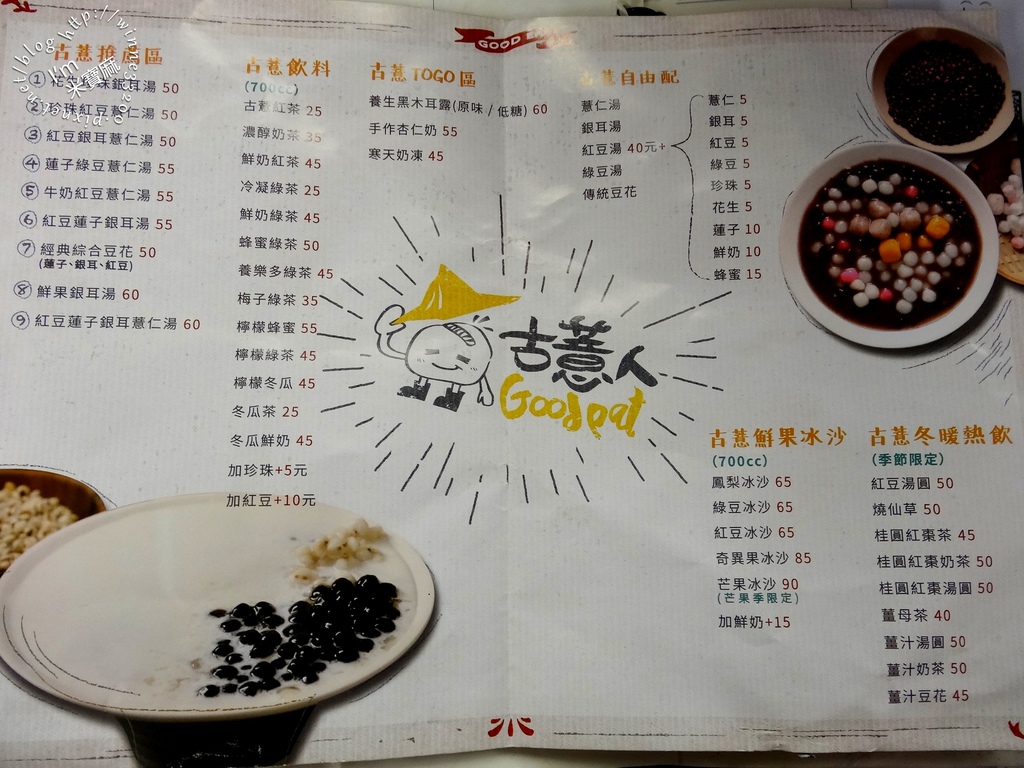 GOOD EAT
古薏推薦區
① 花生珍珠銀耳湯 50
② 珍珠紅豆薏仁湯 50
③ 紅豆銀耳薏仁湯 50
④ 蓮子綠豆薏仁湯 55
⑤ 牛奶紅豆薏仁湯 55
⑥ 紅豆蓮子銀耳湯 55
⑦ 經典綜合豆花 50
(蓮子、銀耳、紅豆)
⑧ 鮮果銀耳湯 60
⑨ 紅豆蓮子銀耳薏仁湯 60
古薏飲料
(700cc)
古薏紅茶 25
濃醇奶茶 35
鮮奶紅茶 45
冷凝綠茶 25
鮮奶綠茶 45
蜂蜜綠茶 50
養樂多綠茶 45
梅子綠茶 35
檸檬蜂蜜 55
檸檬綠茶 45
檸檬冬瓜 45
冬瓜茶 25
冬瓜鮮奶 45
加珍珠+5元
加紅豆+10元
古薏TOGO區
養生黑木耳露(原味 / 低糖) 60
手作杏仁奶 55
寒天奶凍 45
古薏自由配
薏仁湯
銀耳湯
紅豆湯 40元+
綠豆湯
傳統豆花
薏仁 5
銀耳 5
紅豆 5
綠豆 5
珍珠 5
花生 5
蓮子 10
鮮奶 10
蜂蜜 15
古薏人
Good eat
古薏鮮果冰沙
(700cc)
鳳梨冰沙 65
綠豆冰沙 65
紅豆冰沙 65
奇異果冰沙 85
芒果冰沙 90
(芒果季限定)
加鮮奶+15
古薏冬暖熱飲
(季節限定)
紅豆湯圓 50
燒仙草 50
桂圓紅棗茶 45
桂圓紅棗奶茶 50
桂圓紅棗湯圓 50
薑母茶 40
薑汁湯圓 50
薑汁奶茶 50
薑汁豆花 45